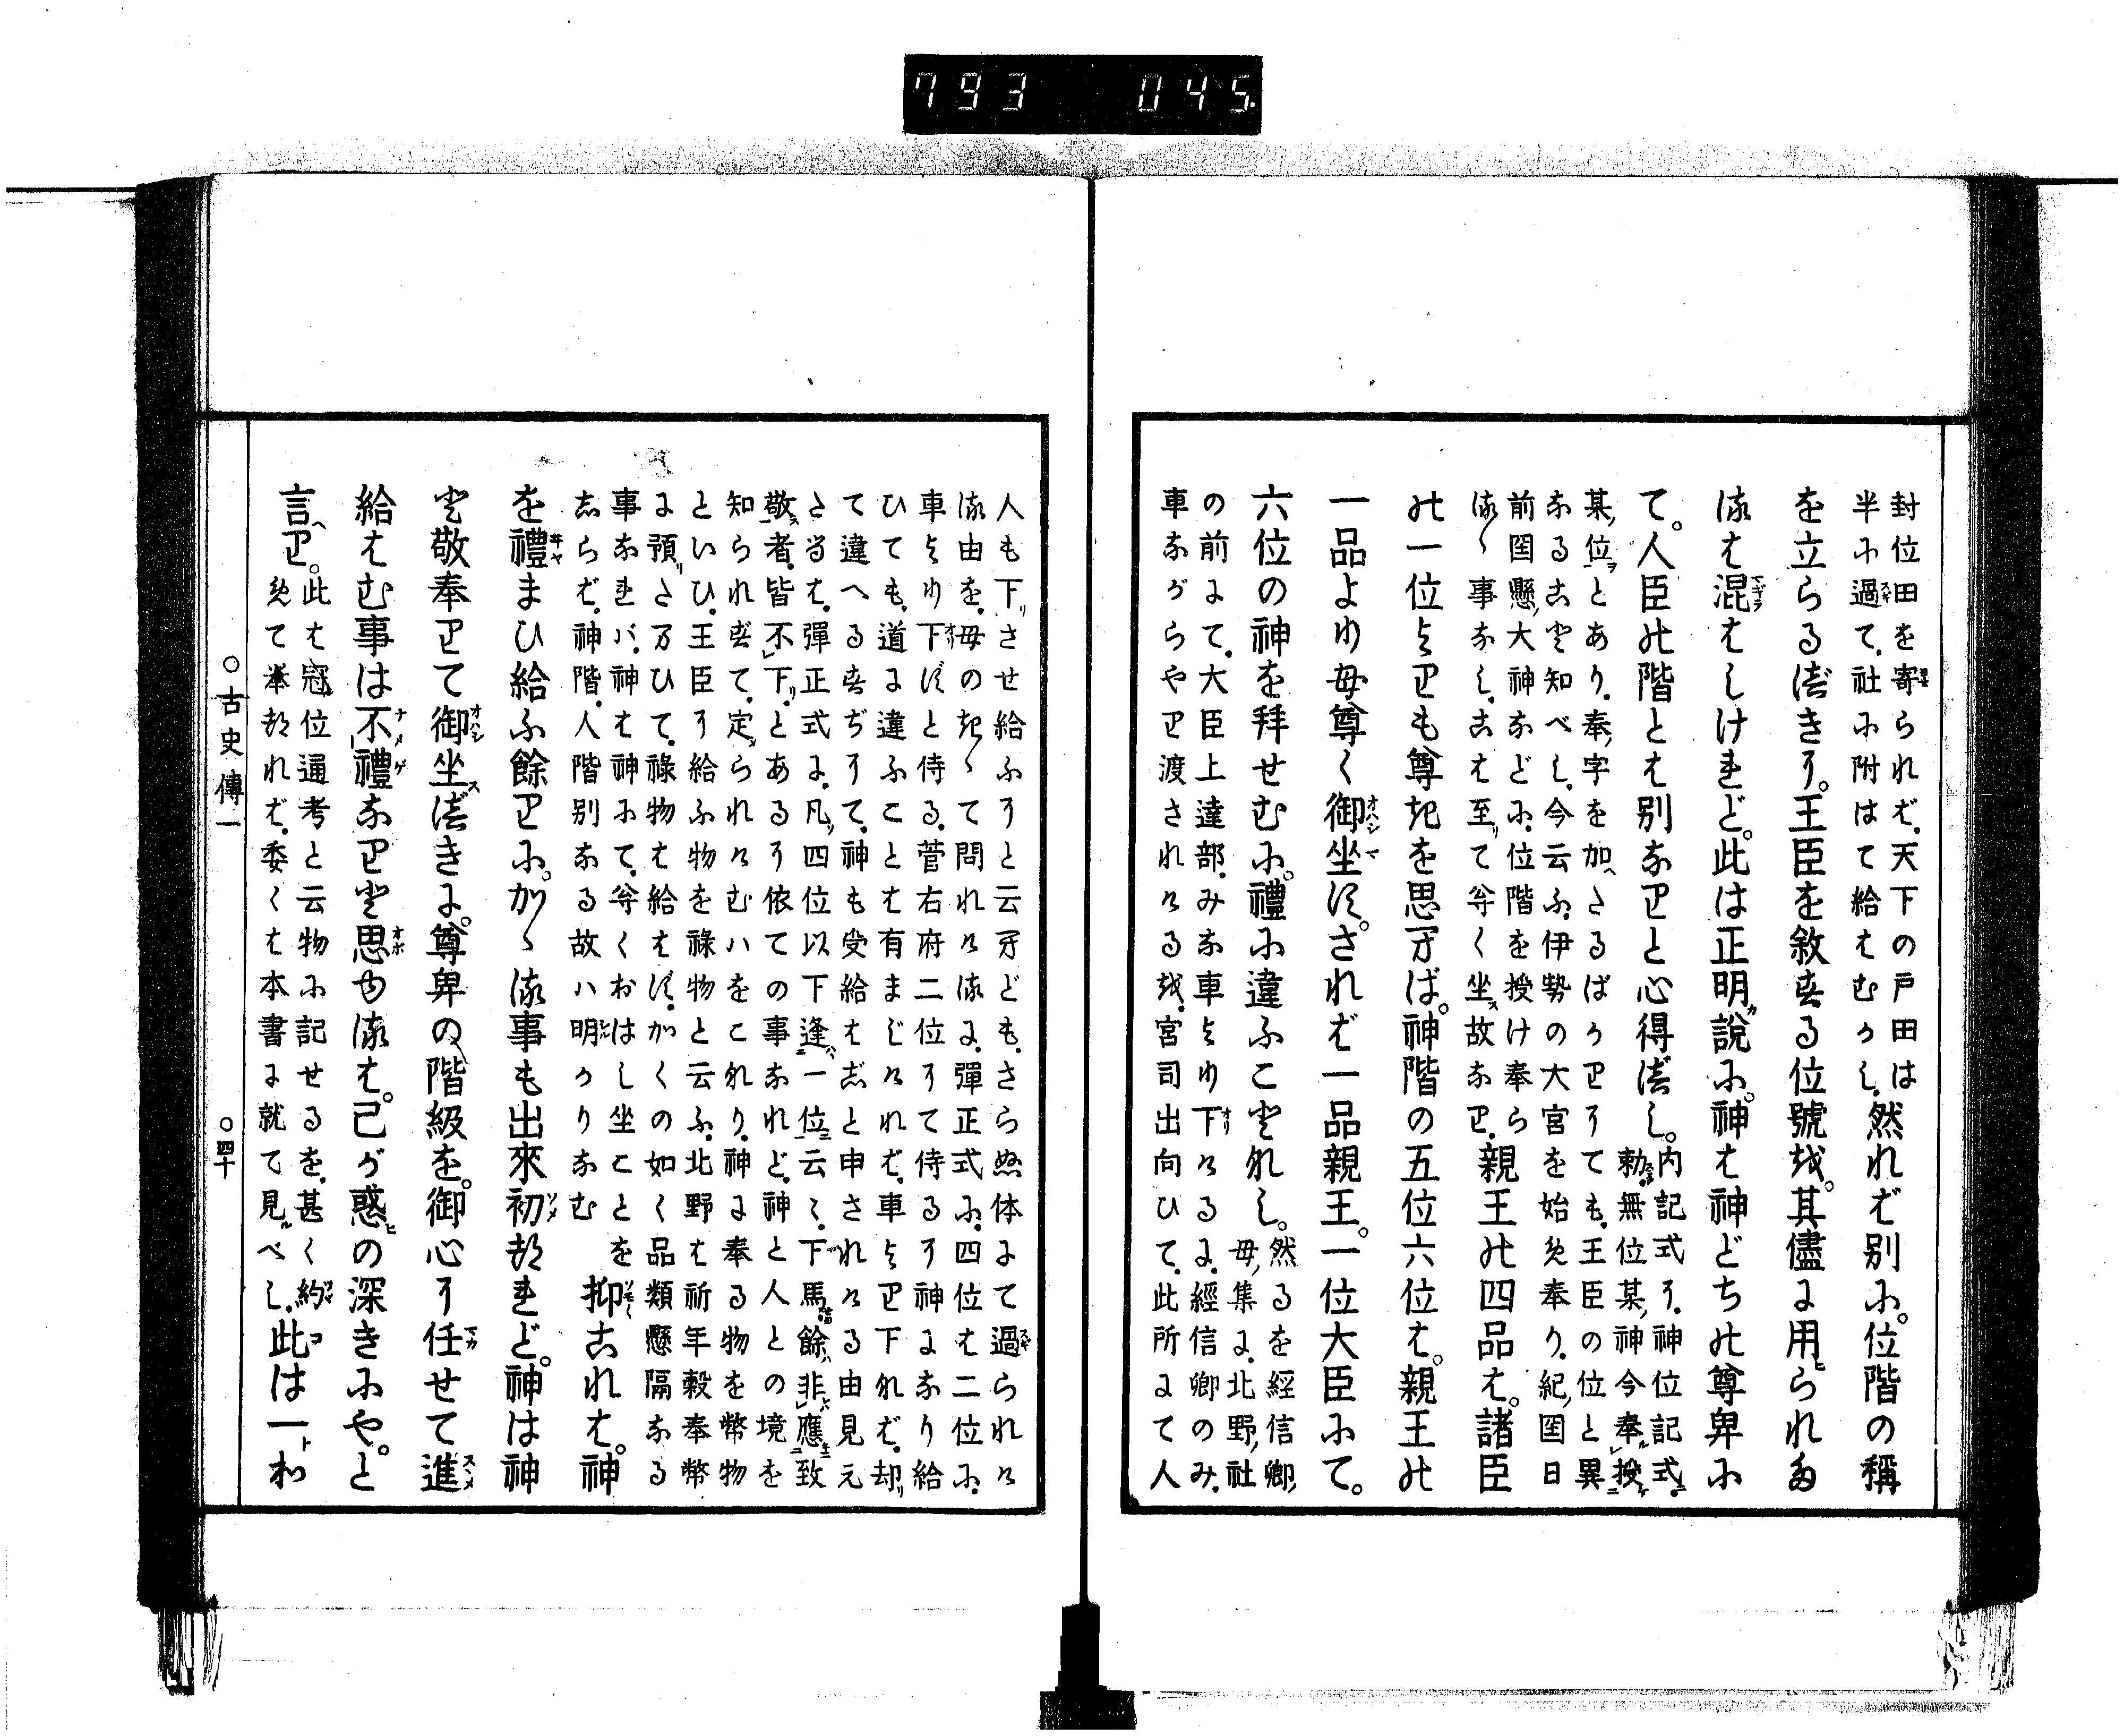 793 045.
封位田を寄られバ、天下の戸田は
半ふ過て、社ふ附はて給はむうし、然れバ別ふ。位階の稱
を立らるべきり。王臣を敘する位號を。其儘に用られた
るは混はしけれど。此は正明が說ふ。神は神どちの尊卑ふ
て。人臣の階とは別なりと心得べし。
内記式に、神位記式、
勅、無位某、神今奉授
某、位とあり、奉、字を加へさるばかりにても、王臣の位と異
なること知べし、今云ふ、伊勢の大宮を始め奉り、紀、国日
前国懸、大神などふ、位階を授け奉ら
るゝ事なし、こは至て尊く坐故なり、
親王の四品は。諸臣
の一位よりも尊きを思へば。神階の五位六位は。親王の
一品より毋尊く御坐す。されバ一品親王。一位大臣ふて。
六位の神を拜せむふ。禮ふ違ふことなし。
然るを経信卿、
毋集に、北野、社
の前にて、大臣上達部、みな車より下ける に、經信卿のみ、
車ながらやり渡されけるを、宮司出向ひて、此所にて人
人も下させ給ふりと云へども、さらぬ体にて過られけ
る由を、毋のきゝて問れけるに、彈正式ふ、四位は二位ふ、
車より下ずと侍る、菅右府二位にて侍るり神になり給
ひても、道に違ふことは有まじけれバ、車より下れバ、却
て違へるすぢりて、神も受給はじと申されける由見え
さるは、彈正式に、凡四位以下逢一位云々、下馬、餘非應致
敬者、皆不下、とあるり依ての事なれど、神と人との境を
知られずて、定られけむハをこれり、神に奉る物を幣物
といひ、王臣に給ふ物を祿物と云ふ、北野は祈年穀奉幣
に預さ万ひて、祿物は給はず、かくの如く品類懸隔なる
事なれバ、神は神ふて、尊くおはし坐ことを
志らバ、神階、人階別なる故ハ明りなむ
抑これは。神
を禮まひ給ふ餘りふ。かゝる事も出來初れど。神は神
と敬奉りて御坐べきに。尊卑の階級を。御心に任せて進
給はむ事は不禮なりと思ゆるは。己が惑の深きふや。と
言り。
此は冠位通考と云物ふ記せるを、甚く約
めて举れバ、委くは本書に就て見べし、
此は一わ
○古史傳一 ○四十